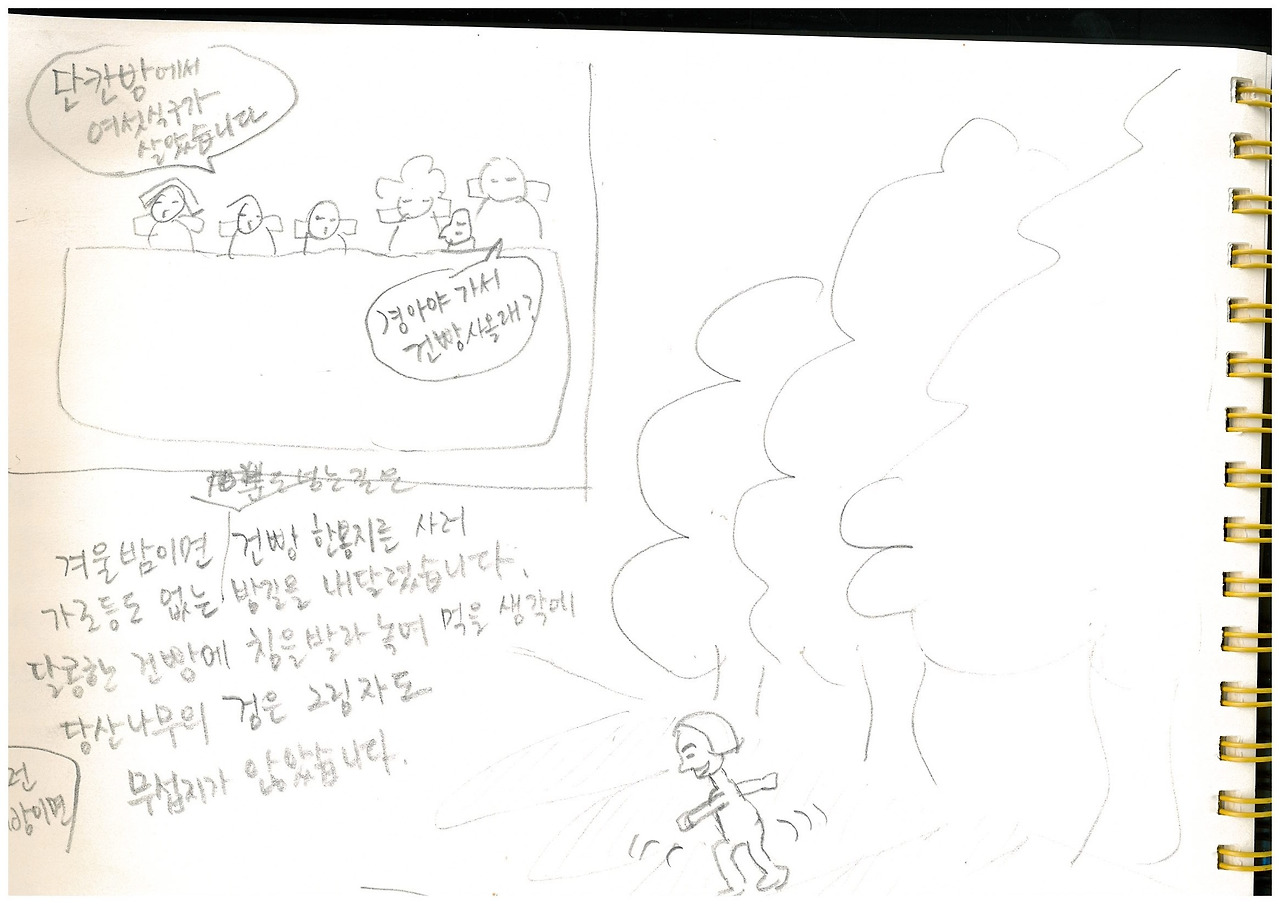 단칸방에서
여섯식구가
살았습니다
경아야 가서
건빵사올래?
10분도 넘는길은
겨울밤이면 건빵 한봉지를 사러
가로등도 없는 밤길을 내달렸습니다.
달콤한 건빵에 침을발라 녹여 먹을 생각에
당산나무의 검은 그림자도
무섭지가 않았습니다.
밤이면